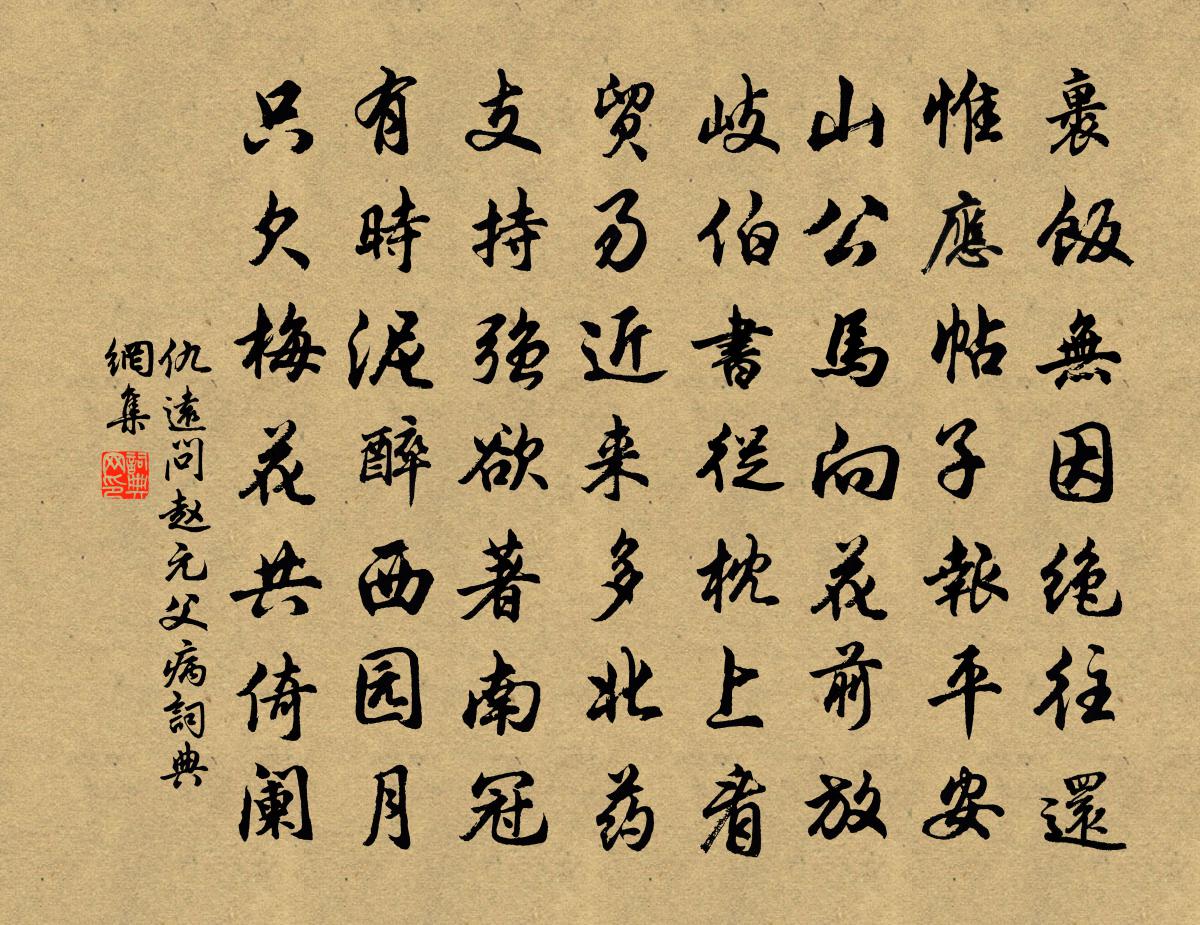 裹飯無因絶往還
惟應帖子報平安
山公馬向花前放
岐伯書從枕上看
貿易近来多北药
支持强欲著南冠
有時泥醉西园月
只欠梅花共倚阑
仇遠問赵元父病詞典
網集
詞典
网印